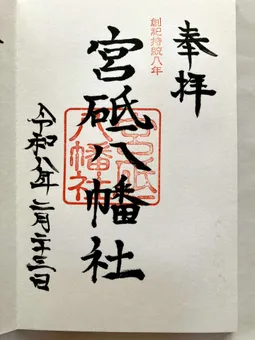 奉拝
創紀持統八年
宮砥八幡社
宮砥
八幡社
令和八年二月二十三日